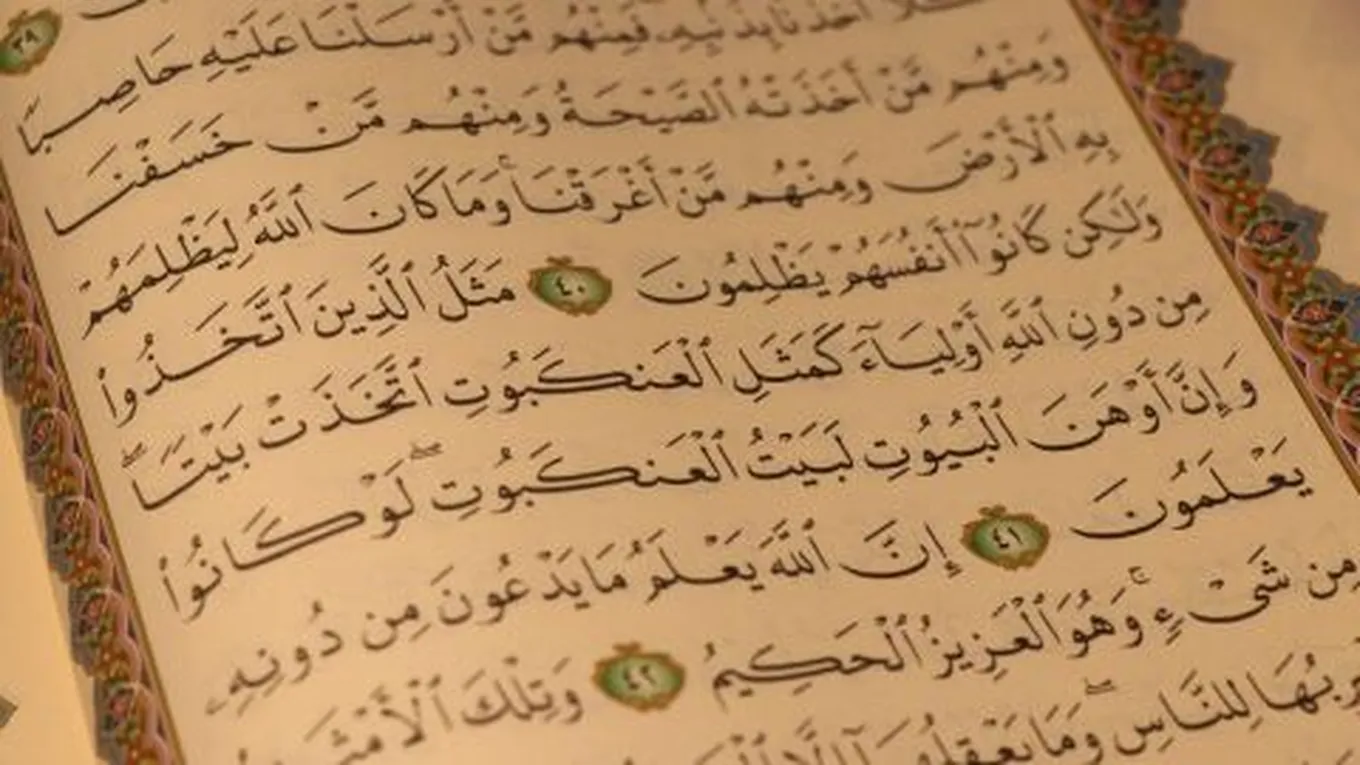 ٣٩
فَكُلًّا أَخَذْنَا بِذَنۢبِهِۦ فَمِنْهُم مَّنْ أَرْسَلْنَا عَلَيْهِ حَاصِبًا
وَمِنْهُم مَّنْ أَخَذَتْهُ ٱلصَّيْحَةُ وَمِنْهُم مَّنْ خَسَفْنَا
بِهِ ٱلْأَرْضَ وَمِنْهُم مَّنْ أَغْرَقْنَا ۚ وَمَا كَانَ ٱللَّهُ لِيَظْلِمَهُمْ
وَلَٰكِن كَانُوٓا۟ أَنفُسَهُمْ يَظْلِمُونَ ٤٠ مَثَلُ ٱلَّذِينَ ٱتَّخَذُوا۟
مِن دُونِ ٱللَّهِ أَوْلِيَآءَ كَمَثَلِ ٱلْعَنكَبُوتِ ٱتَّخَذَتْ بَيْتًا ۖ
وَإِنَّ أَوْهَنَ ٱلْبُيُوتِ لَبَيْتُ ٱلْعَنكَبُوتِ ۖ لَوْ كَانُوا۟
يَعْلَمُونَ ٤١ إِنَّ ٱللَّهَ يَعْلَمُ مَا يَدْعُونَ مِن دُونِهِۦ
مِن شَىْءٍ ۚ وَهُوَ ٱلْعَزِيزُ ٱلْحَكِيمُ ٤٢ وَتِلْكَ ٱلْأَمْثَ
رِبُهَا لِلنَّاسِ ۖ وَمَا يَعْقِلُهَآ إِلَّا